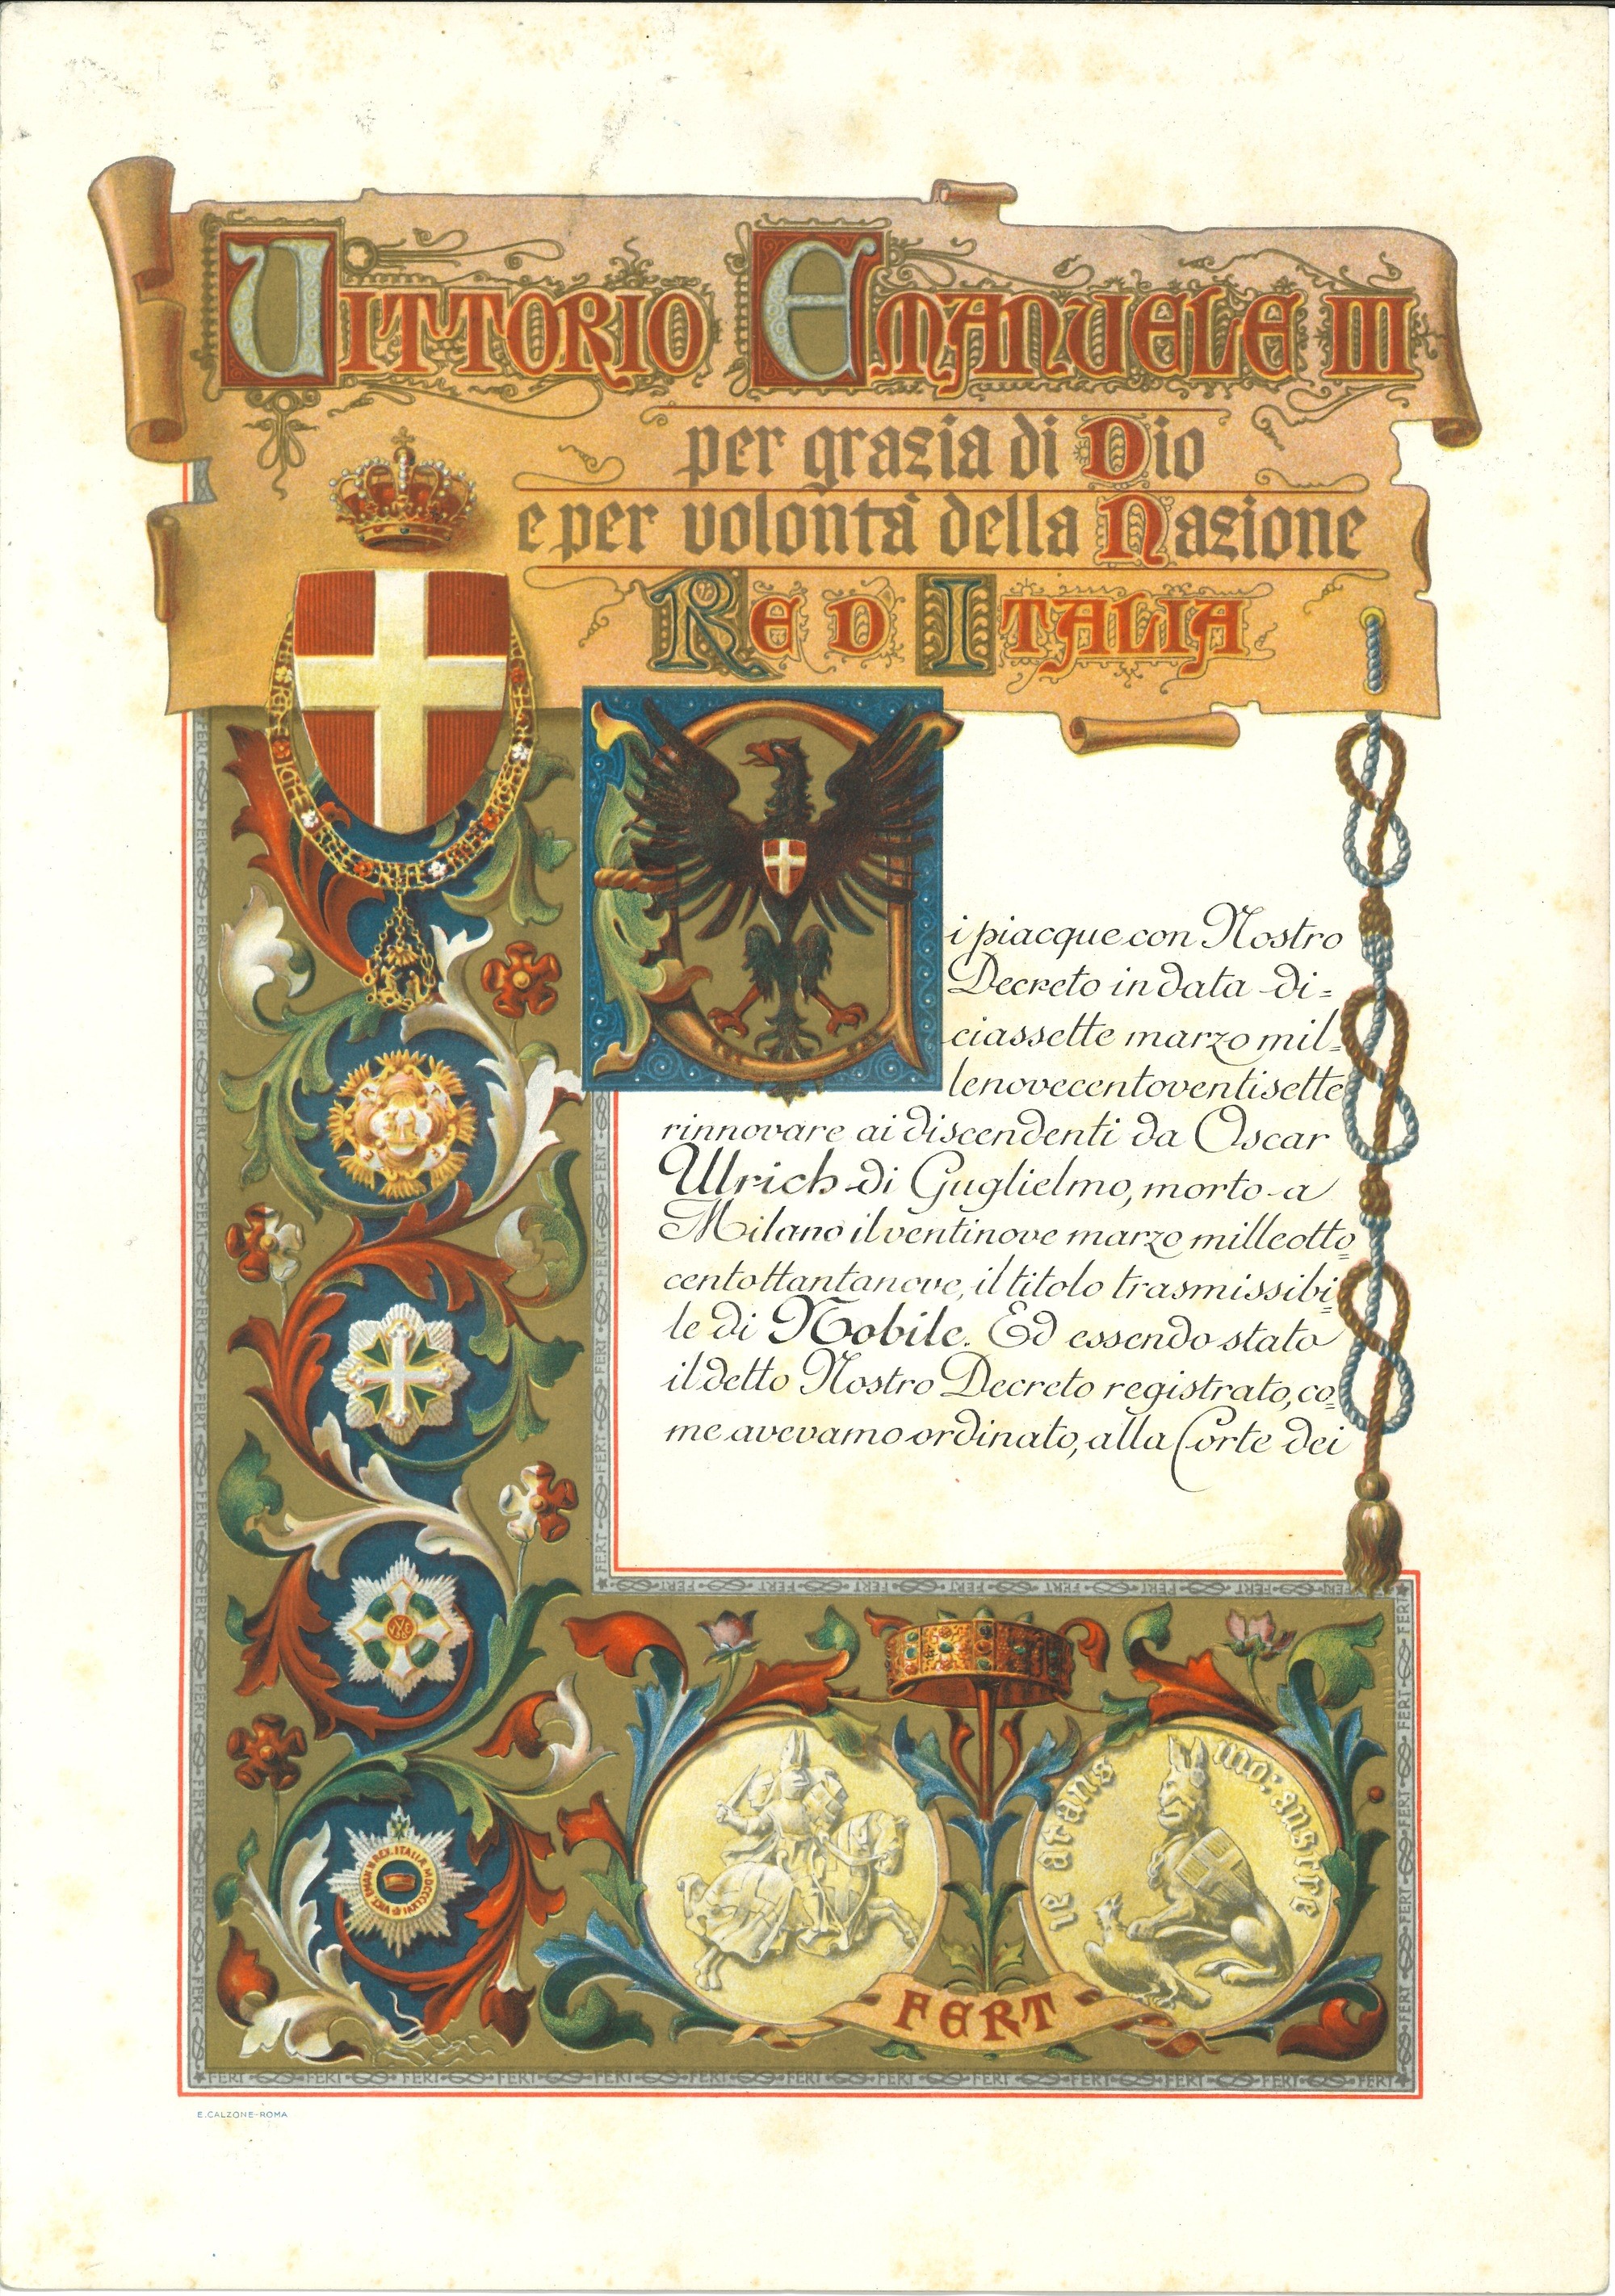 VITTORIO EMANUELE III
per grazia di Dio
e per volontà della Nazione
RE D ITALIA
Ci piacque con Nostro
Decreto in data di=
ciassette marzo mil=
lenovecentoventisette
rinnovare ai discendenti da Oscar
Ulrich di Guglielmo, morto a
Milano il ventinove marzo milleotto=
centottantanove, il titolo trasmissibi=
le di Nobile. Ed essendo stato
il detto Nostro Decreto registrato, co=
me avevamo ordinato, alla Corte dei
FERT
E. CALZONE-ROMA